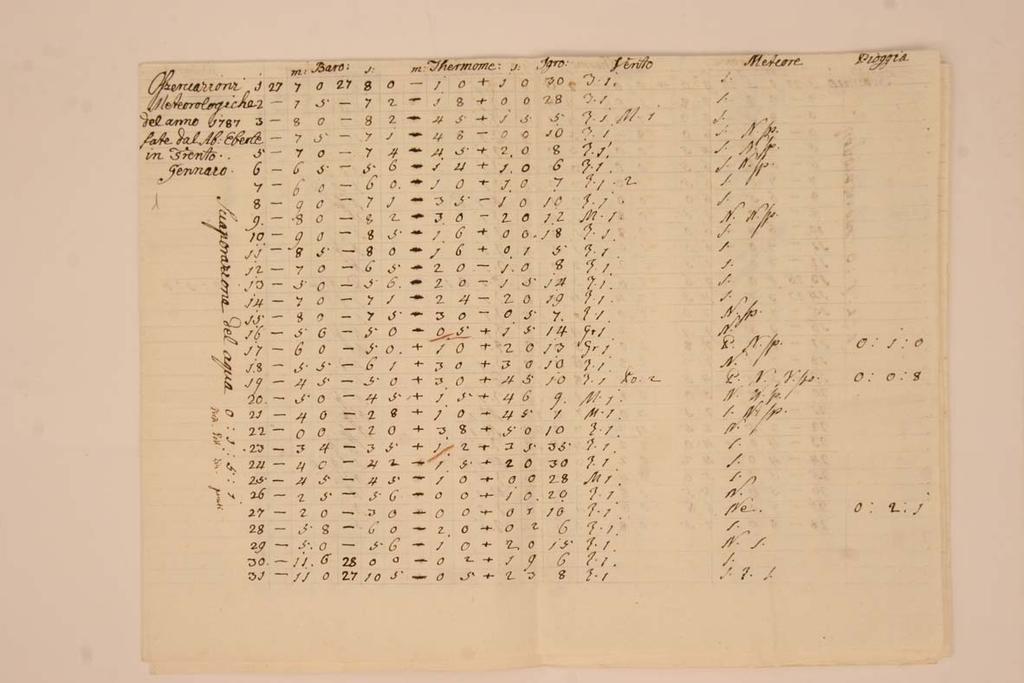 m: Baro: s: m: Thermome: s: Igro: Vento Meteore Pioggia
Osservazioni 1 27 7 0 27 8 0 - 1 0 + 1 0 30 T.1. s.
Meteorologiche 2 - 7 5 - 7 2 - 1 8 + 0 0 28 T.1 s.
del anno 1787 3 - 8 0 - 8 2 - 4 5 + 1 5 5 T.1. M.1 s.
fate dal Ab: Eberle - 7 5 - 7 1 - 4 8 - 0 0 10 T.1 s. N/sp.
in Trento. 5 - 7 0 - 7 4 - 4 5 + 2 0 8 T.1. s. N/sp.
Gennaro. 6 - 6 5 - 5 6 - 1 4 + 1 0 6 T.1 s. N/sp.
7 - 6 0 - 6 0. - 1 0 + 1 0 7 T.1 2 s.
8 - 9 0 - 7 1 - 3 5 - 1 0 10 T.1. s.
9. - 8 0 - 8 2 - 3 0 - 2 0 12 M.1 N. N/sp.
10 - 9 0 - 8 5 - 1 6 + 0 0 18 T.1. s.
11 - 8 5 - 8 0 - 1 6 + 0 1 5 T.1 s.
12 - 7 0 - 6 5 - 2 0 - 1 0 8 T.1 s.
13 - 5 0 - 5 6. - 2 0 - 1 5 14 T.1. s.
14 - 7 0 - 7 1 - 2 4 - 2 0 19 T.1. s.
15 - 8 0 - 7 5 - 3 0 - 0 5 7. T.1 N/sp.
16 - 5 6 - 5 0 - 0 5 + 1 5 14 Gr1 N.
17 - 6 0 - 5 0. + 1 0 + 2 0 13 Gr1. P. N/sp. 0 : 1 : 0
18 - 5 5 - 6 1 + 3 0 + 3 0 10 T.1. N.
19 - 4 5 - 5 0 + 3 0 + 4 5 10 T.1 2 P. N. N/sp. 0 : 0 : 8
20. - 5 0 - 4 5 + 1 5 + 4 6 9. M.1. N. N/sp.
21 - 4 0 - 2 8 + 1 0 + 4 5 1 M.1. s. N/sp.
22 - 0 0 - 2 0 + 3 8 + 5 0 10 T.1. N.
23 - 3 4 - 3 5 + 1 2 + 3 5 35 T.1. s.
24 - 4 0 - 4 2 - 1 5 + 2 0 30 T.1. s.
25 - 4 5 - 4 5 - 1 0 + 0 0 28 M.1 s.
26 - 2 5 - 5 6 - 0 0 + 1 0. 20 T.1. N.
27 - 2 0 - 3 0 - 0 0 + 0 1 10 T.1. Ne.. 0 : 2 : 1
28 - 5 8 - 6 0 - 2 0 + 0 2 6 T.1. s.
29 - 5 0 - 5 6 - 1 0 + 2 0 15 T.1. N. s.
30 - 11 6 28 0 0 - 0 2 + 1 9 6 T.1. s.
31 - 11 0 27 10 5 - 0 5 + 2 3 8 T.1 s. T. s.
Suaporazione del aqua 0 : 1 : 5 : 1